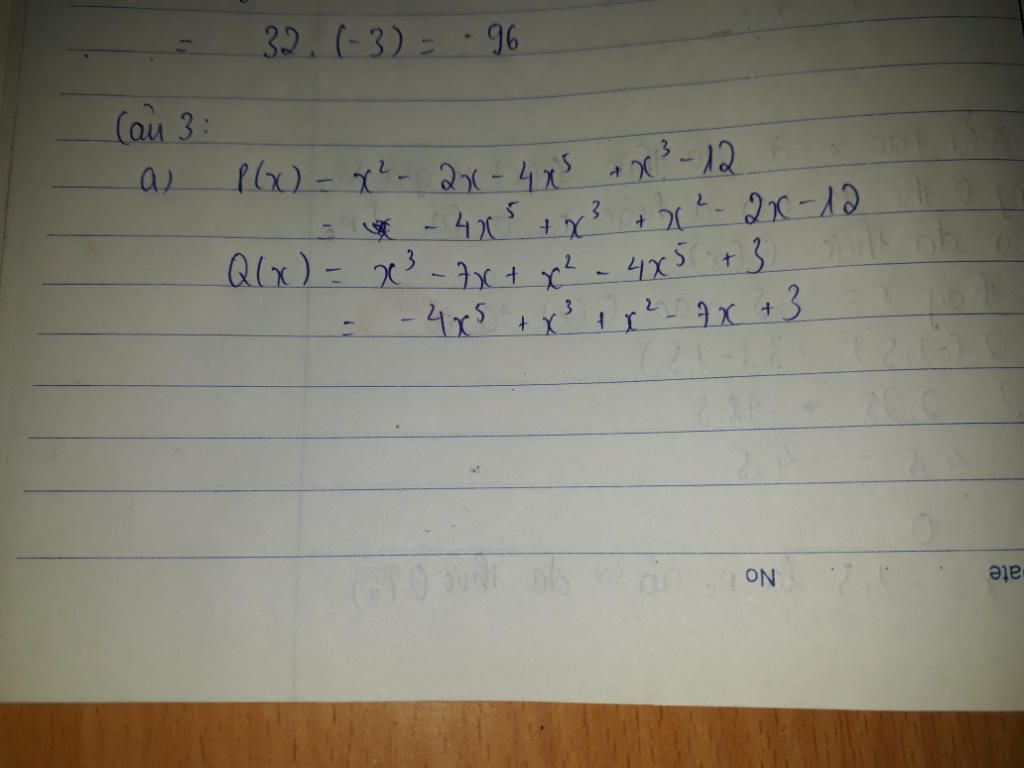 = 32. (-3) = -96
Câu 3:
a) P(x) = x² - 2x - 4x⁵ + x³ - 12
= - 4x⁵ + x³ + x² - 2x - 12
Q(x) = x³ - 7x + x² - 4x⁵ + 3
= - 4x⁵ + x³ + x² - 7x + 3
No